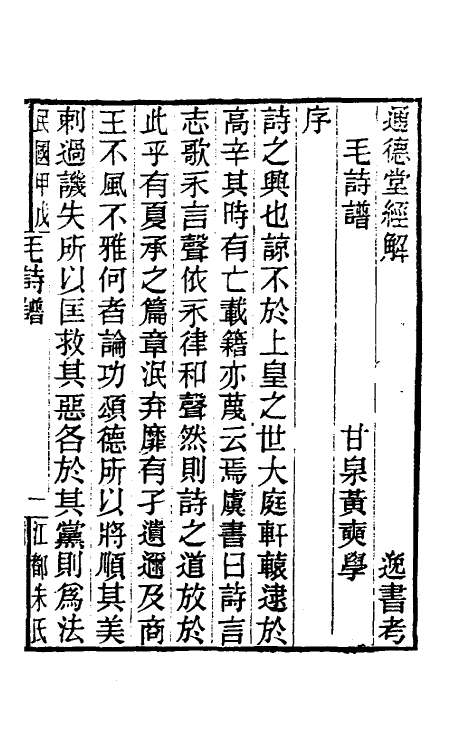 通德堂經解　逸書考
毛詩譜　甘泉黃奭學
序
詩之興也諒不於上皇之世大庭軒轅逮於
高辛其時有亡載籍亦蔑云焉虞書曰詩言
志歌永言聲依永律和聲然則詩之道放於
此乎有夏承之篇章泯弃靡有孑遺邇及商
王不風不雅何者論功頌德所以將順其美
刺過譏失所以匡救其惡各於其黨則爲法
民國甲戌　毛詩譜　一　江都朱氏